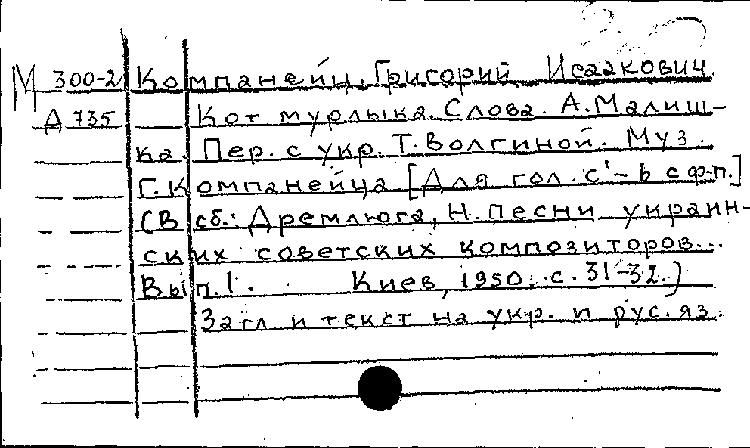 М 300-2 Компанеец, Григорий Исаакович
А 735 Кот мурлыка. Слова А. Малиш-
ка. Пер. с укр. Т. Волгиной. Муз.
Г. Компанейца [Для гол. с¹-b с ф.-п.]
(В сб.: Дремлюга, Н. Песни украин-
ских советских композиторов...
Вып. 1. Киев, 1950. с. 31-32.)
Загл. и текст на укр. и рус. яз.